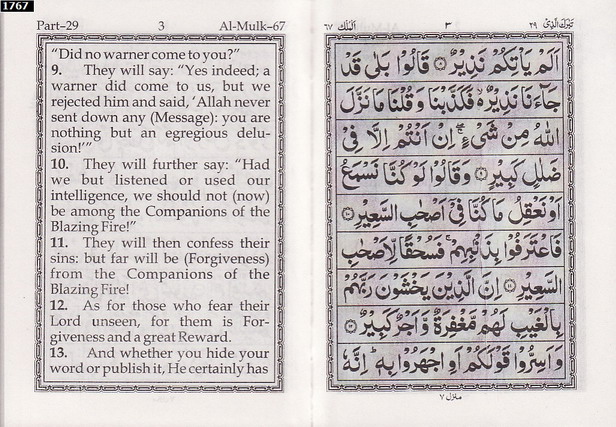 1767
Part–29 3 Al-Mulk–67
“Did no warner come to you?”
9. They will say: “Yes indeed; a
warner did come to us, but we
rejected him and said, ‘Allah never
sent down any (Message): you are
nothing but an egregious delu-
sion!’”
10. They will further say: “Had
we but listened or used our
intelligence, we should not (now)
be among the Companions of the
Blazing Fire!”
11. They will then confess their
sins: but far will be (Forgiveness)
from the Companions of the
Blazing Fire!
12. As for those who fear their
Lord unseen, for them is For-
giveness and a great Reward.
13. And whether you hide your
word or publish it, He certainly has
٦٧ اَلْمُلْك ٣ تَبٰرَكَ الَّذِىْ ٢٩
اَلَمْ يَاْتِكُمْ نَذِيْرٌ ۝ قَالُوْا بَلٰى قَدْ
جَآءَنَا نَذِيْرٌ ۙ فَكَذَّبْنَا وَ قُلْنَا مَا نَزَّلَ
اللّٰهُ مِنْ شَىْءٍ ۚ اِنْ اَنْتُمْ اِلَّا فِىْ
ضَلٰلٍ كَبِيْرٍ ۝ وَ قَالُوْا لَوْ كُنَّا نَسْمَعُ
اَوْ نَعْقِلُ مَا كُنَّا فِىْٓ اَصْحٰبِ السَّعِيْرِ ۝
فَاعْتَرَفُوْا بِذَنْۢبِهِمْ ۚ فَسُحْقًا لِّاَصْحٰبِ
السَّعِيْرِ ۝ اِنَّ الَّذِيْنَ يَخْشَوْنَ رَبَّهُمْ
بِالْغَيْبِ لَهُمْ مَّغْفِرَةٌ وَّ اَجْرٌ كَبِيْرٌ ۝
وَ اَسِرُّوْا قَوْلَكُمْ اَوِ اجْهَرُوْا بِهٖ ؕ اِنَّهٗ
منزل ٧